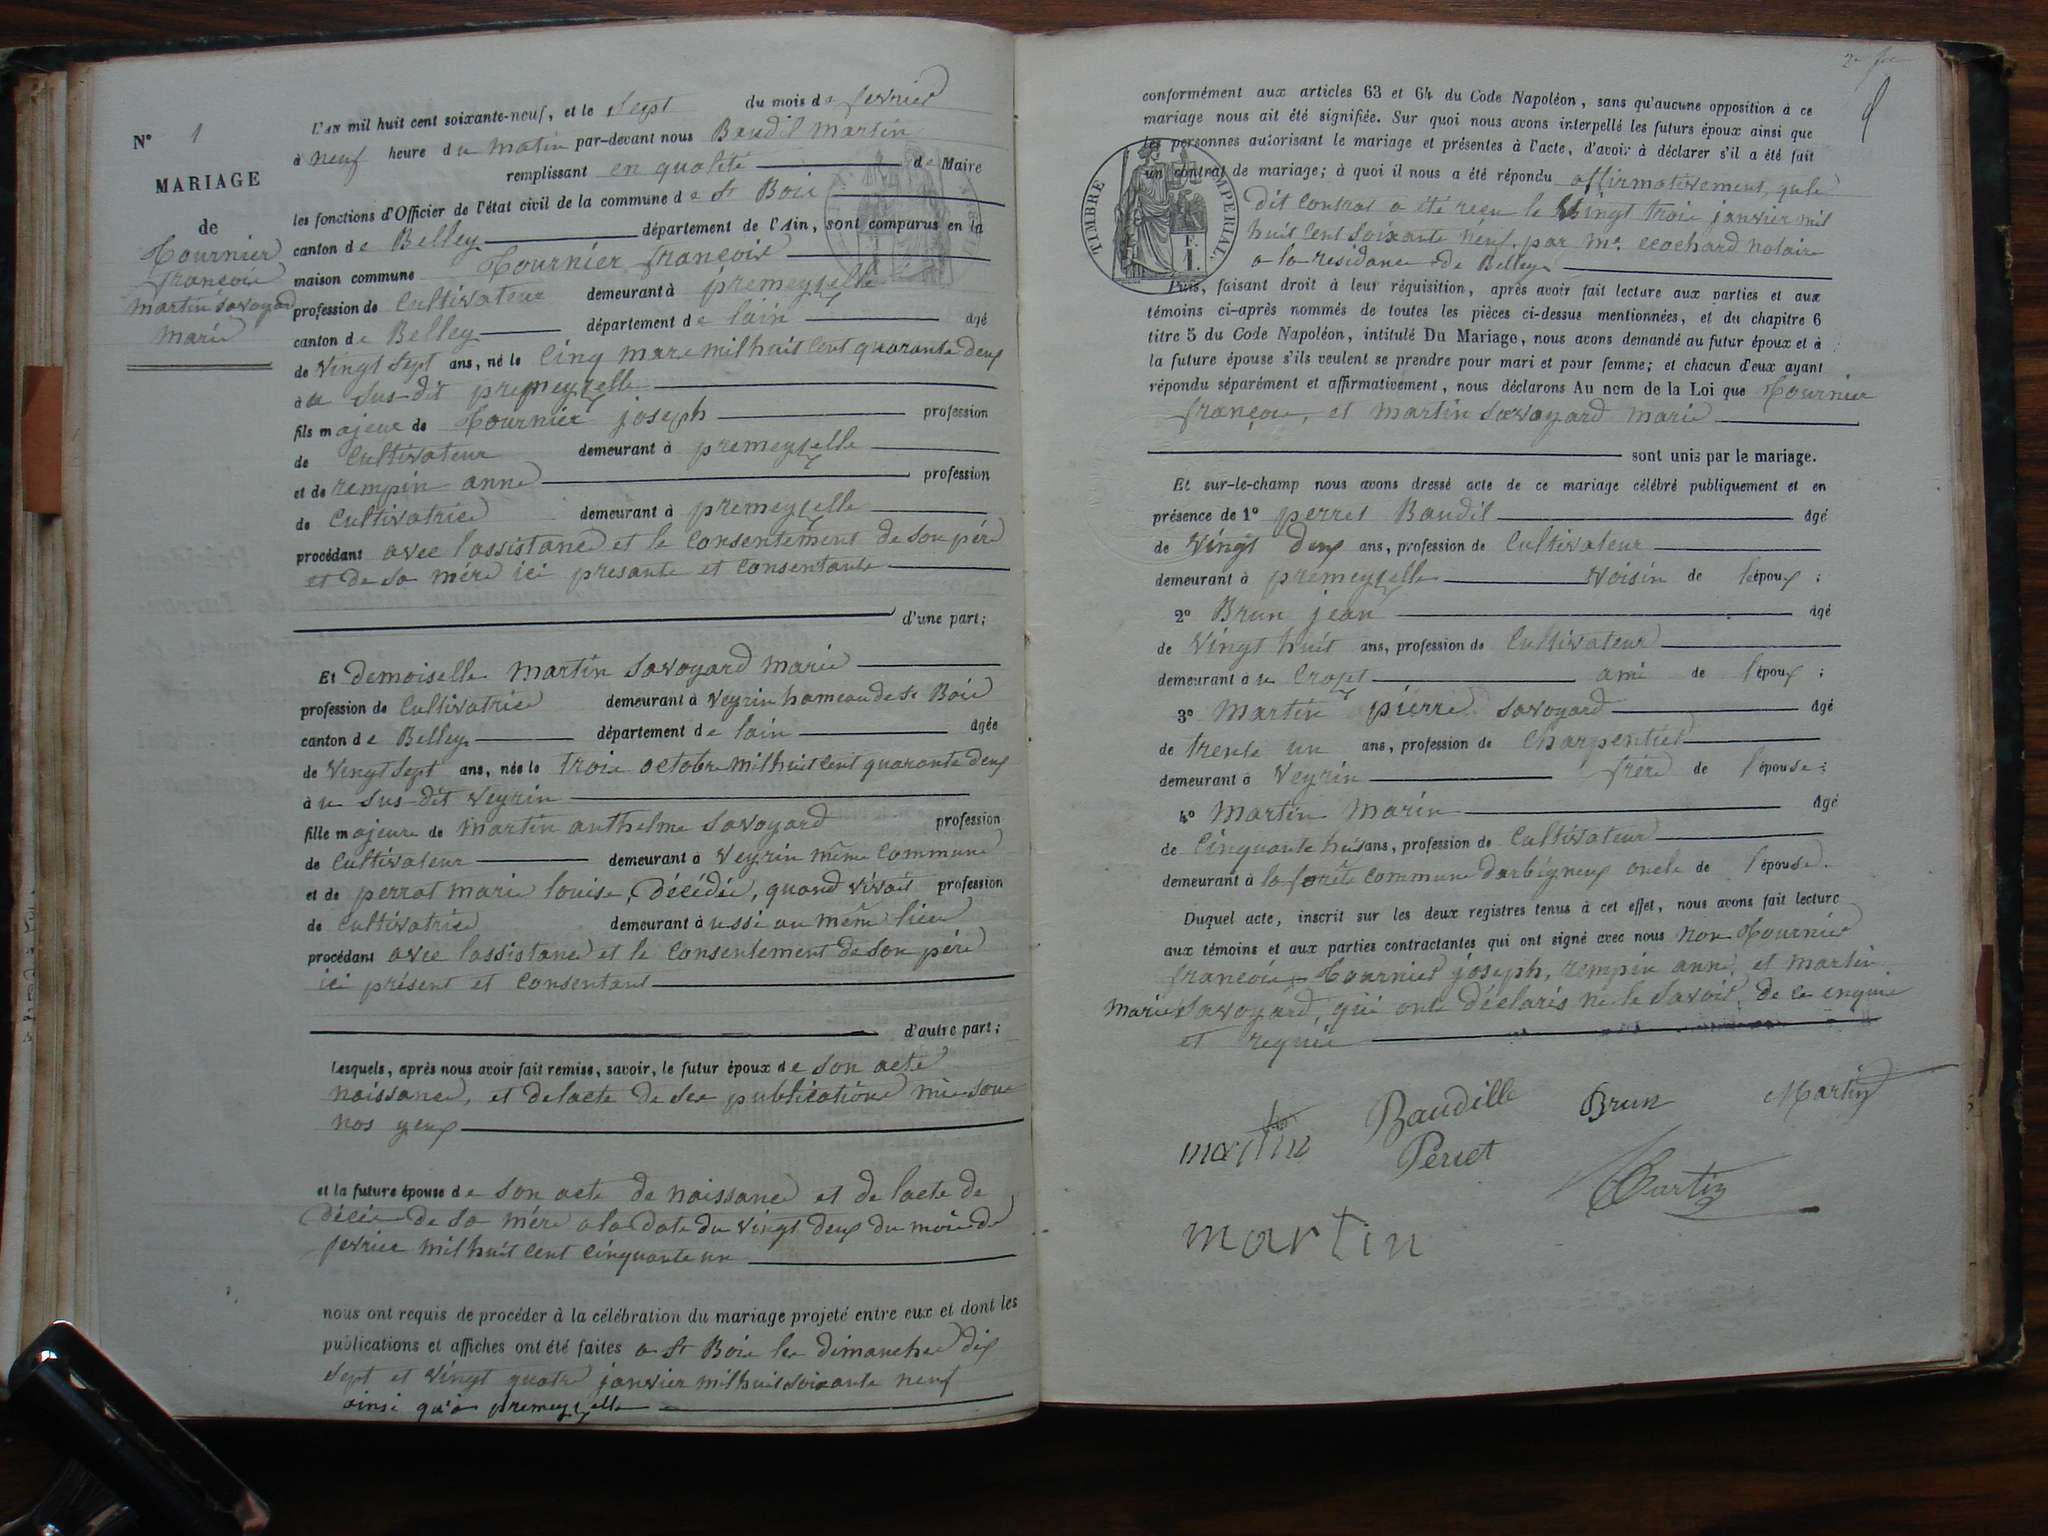 N° 1
MARIAGE
de
Tournier
françois
martin savoyard
marie
L'an mil huit cent soixante-neuf, et le Sept du mois de fevrier
à neuf heure du matin par-devant nous Baudil Martin
remplissant en qualité de Maire
les fonctions d'Officier de l'état civil de la commune de St Bois
canton de Belley département de l'Ain, sont comparus en la
maison commune Tournier françois
profession de Cultivateur demeurant à premeyzelle
canton de Belley département de lain âgé
de vingt sept ans, né le Cinq mars mil huit Cent quarante deux
à u sus-dit premeyzelle
fils majeur de Tournier joseph profession
de Cultivateur demeurant à premeyzelle
et de rempin anne profession
de Cultivatrice demeurant à premeyzelle
procédant avec lassistance et le Consentement de son père
et de sa mére ici presante et Consentante
d'une part;
Et demoiselle Martin Savoyard Marie
profession de Cultivatrice demeurant à Veyrin hameau de St Bois
canton de Belley département de lain âgée
de Vingt Sept ans, née le trois octobre mil huit Cent quarante deux
à u sus-dit Veyrin
fille majeure de Martin anthelme Savoyard profession
de Cultivateur demeurant à Veyrin même Commune
et de perrat marie louise, décédée, quand vivait profession
de Cultivatrice demeurant à ussi au même lieu
procédant avec lassistance et le Consentement de son père
ici présent et Consentant
d'autre part;
Lesquels, après nous avoir fait remise, savoir, le futur époux de son acte
naissance, et de lacte de ses publications mis sous
nos yeux
et la future épouse de son acte de naissance et de lacte de
décès de sa mére a la date du vingt deux du mois de
fevrier mil huit Cent Cinquante un
nous ont requis de procéder à la célébration du mariage projeté entre eux et dont les
publications et affiches ont été faites a St Bois les dimanches dix
sept et vingt quatre janvier mil huit soixante neuf
ainsi qu'à premeyzelle
conformément aux articles 63 et 64 du Code Napoléon, sans qu'aucune opposition à ce
mariage nous ait été signifiée. Sur quoi nous avons interpellé les futurs époux ainsi que
les personnes autorisant le mariage et présentes à l'acte, d'avoir à déclarer s'il a été fait
un contrat de mariage; à quoi il nous a été répondu affirmativement, que le
dit Contrat a été reçu le Vingt trois janvier mil
huit Cent Soixante Neuf, par Me. cochard notaire
a la residance de Belley
TIMBRE IMPERIAL.
Puis, faisant droit à leur réquisition, après avoir fait lecture aux parties et aux
témoins ci-après nommés de toutes les pièces ci-dessus mentionnées, et du chapitre 6
titre 5 du Code Napoléon, intitulé Du Mariage, nous avons demandé au futur époux et à
la future épouse s'ils veulent se prendre pour mari et pour femme; et chacun d'eux ayant
répondu séparément et affirmativement, nous déclarons Au nom de la Loi que Tournier
françois, et Martin Savoyard Marie
sont unis par le mariage.
Et sur-le-champ nous avons dressé acte de ce mariage célébré publiquement et en
présence de 1° perret Baudil âgé
de Vingt deux ans, profession de Cultivateur
demeurant à premeyzelle Voisin de lépoux ;
2° Brun jean âgé
de Vingt huit ans, profession de Cultivateur
demeurant à u Crozet ami de lépoux ;
3° Martin pierre savoyard âgé
de trente un ans, profession de Charpentier
demeurant à Veyrin frère de lépouse ;
4° Martin Marin âgé
de Cinquante huit ans, profession de Cultivateur
demeurant à la forêt Commune darbigneux oncle de lépouse.
Duquel acte, inscrit sur les deux registres tenus à cet effet, nous avons fait lecture
aux témoins et aux parties contractantes qui ont signé avec nous Non Tournier
françois, Tournier joseph, rempin anne, et Martin
Marie Savoyard, qui ont déclarés ne le savoir, de ce enquis
et requis
martin Baudille Brun Martin
Perret
martin